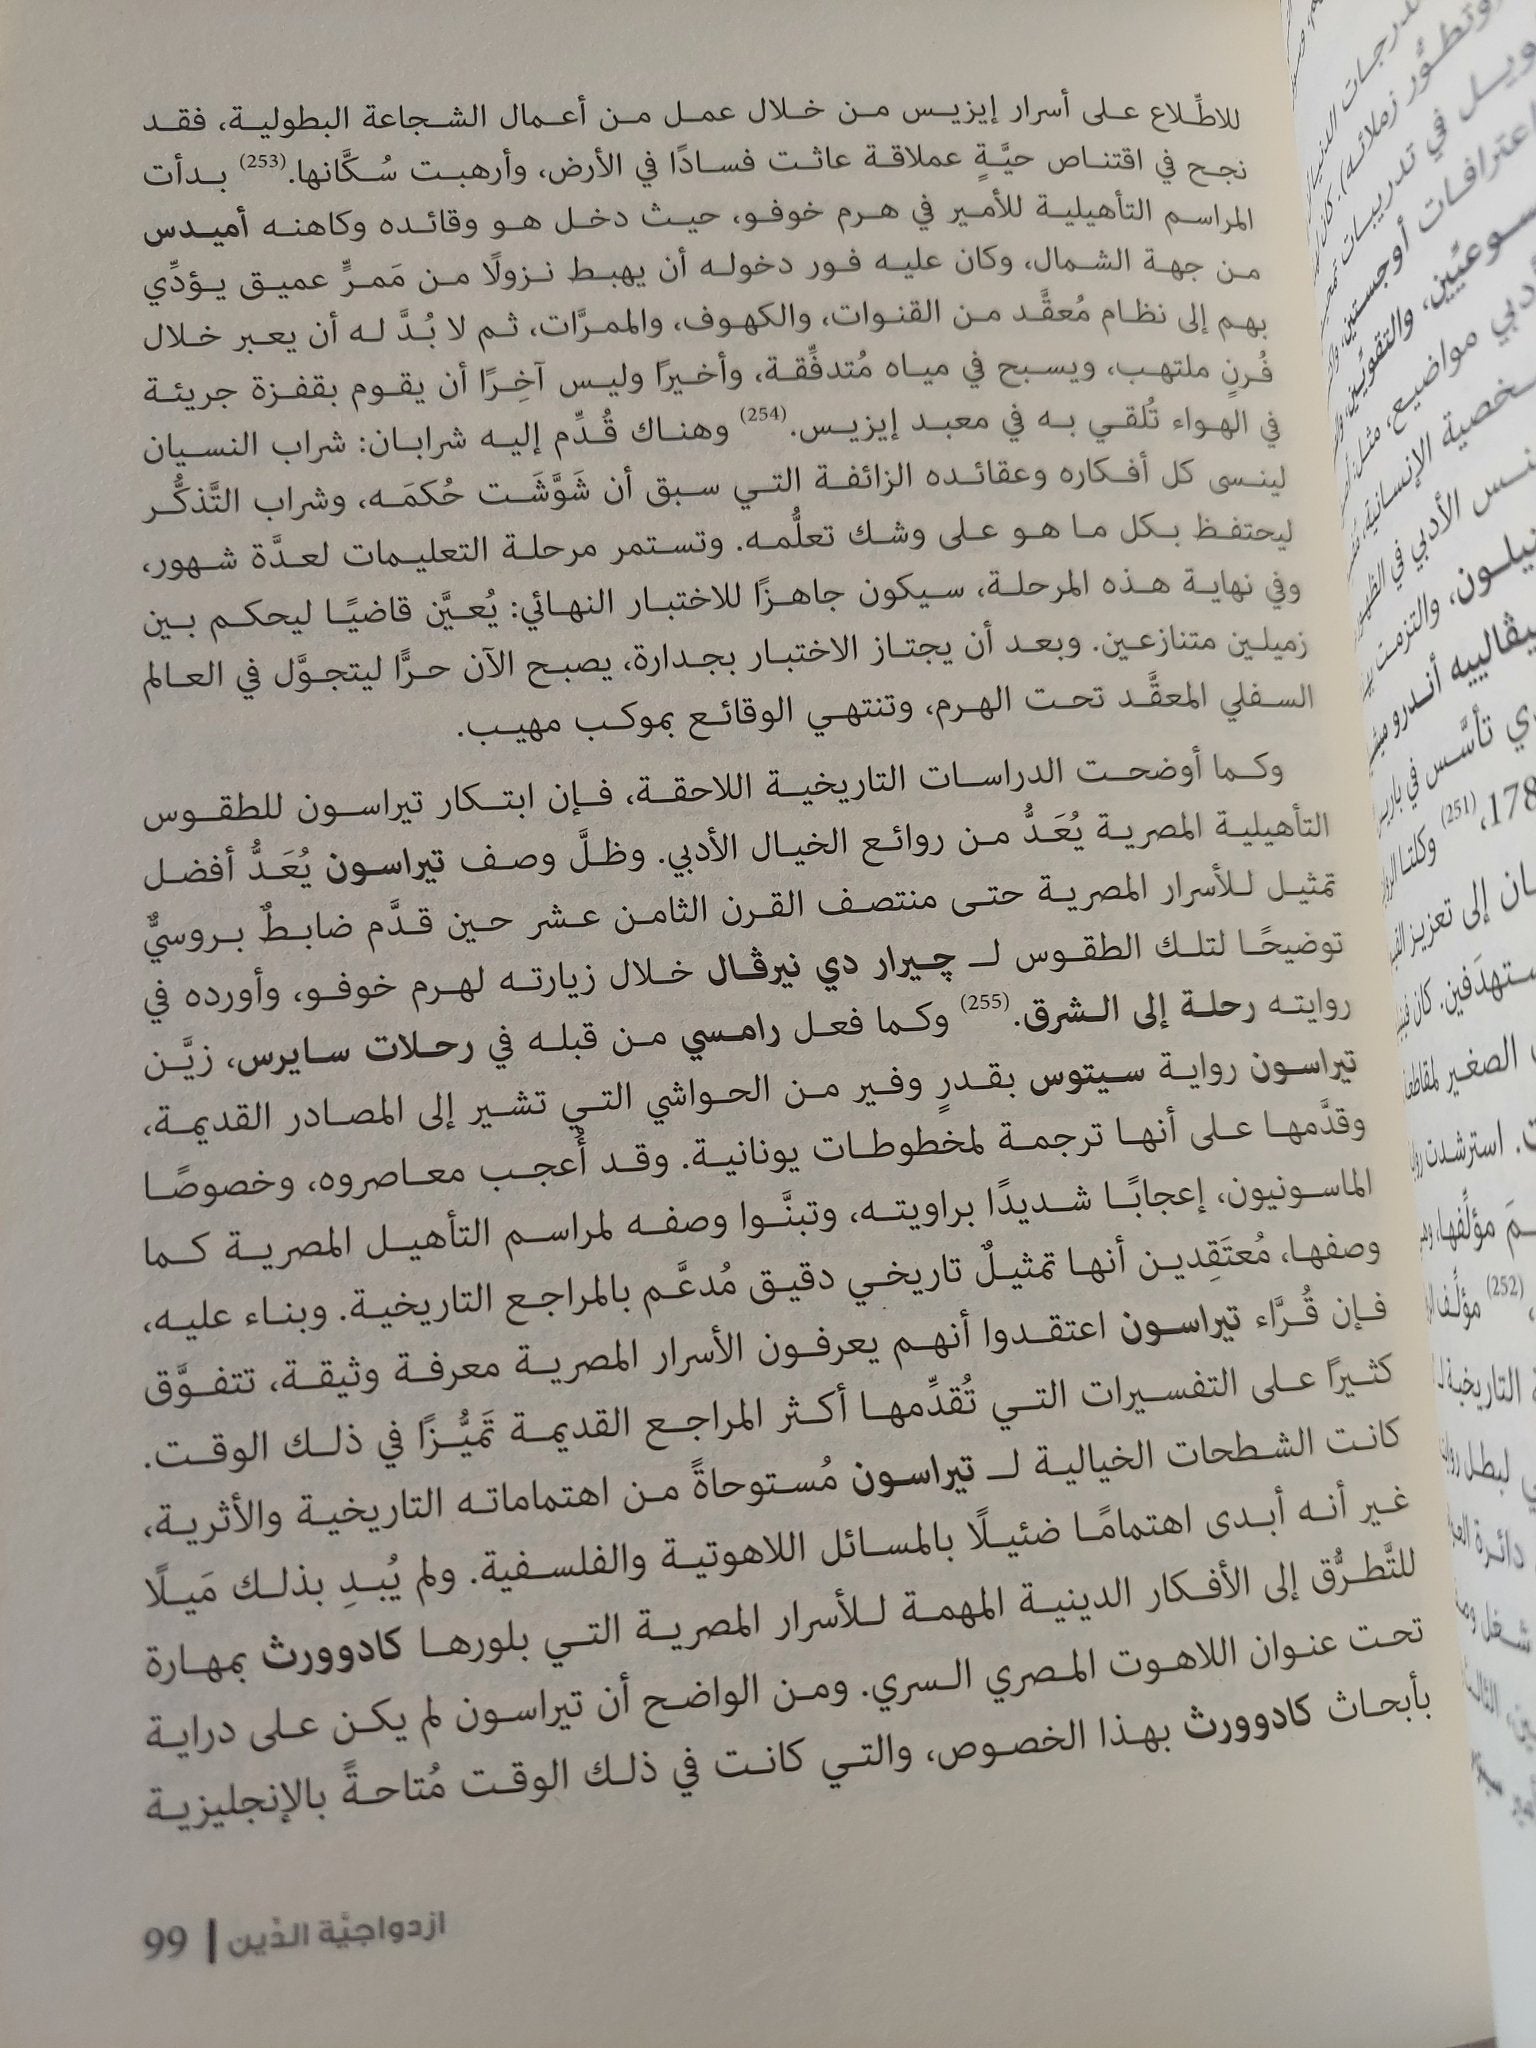 للاطِّلاع على أسرار إيزيس من خلال عمل من أعمال الشجاعة البطولية، فقد
نجح في اقتناص حيَّةٍ عملاقة عاثت فسادًا في الأرض، وأرهبت سُكَّانها.(253) بدأت
المراسم التأهيلية للأمير في هرم خوفو، حيث دخل هو وقائده وكاهنه أميدس
من جهة الشمال، وكان عليه فور دخوله أن يهبط نزولًا من مَمرٍّ عميق يؤدِّي
بهم إلى نظام مُعقَّد من القنوات، والكهوف، والممرَّات، ثم لا بُدَّ له أن يعبر خلال
فُرنٍ ملتهب، ويسبح في مياه مُتدفِّقة، وأخيرًا وليس آخِرًا أن يقوم بقفزة جريئة
في الهواء تُلقي به في معبد إيزيس.(254) وهناك قُدِّم إليه شرابان: شراب النسيان
لينسى كل أفكاره وعقائده الزائفة التي سبق أن شَوَّشَت حُكمَه، وشراب التَّذكُّر
ليحتفظ بكل ما هو على وشك تعلُّمه. وتستمر مرحلة التعليمات لعدَّة شهور،
وفي نهاية هذه المرحلة، سيكون جاهزًا للاختبار النهائي: يُعيَّن قاضيًا ليحكم بين
زميلين متنازعين. وبعد أن يجتاز الاختبار بجدارة، يصبح الآن حرًّا ليتجوَّل في العالم
السفلي المعقَّد تحت الهرم، وتنتهي الوقائع بموكب مهيب.
وكما أوضحت الدراسات التاريخية اللاحقة، فإن ابتكار تيراسون للطقوس
التأهيلية المصرية يُعَدُّ من روائع الخيال الأدبي. وظلَّ وصف تيراسون يُعَدُّ أفضل
تمثيل للأسرار المصرية حتى منتصف القرن الثامن عشر حين قدَّم ضابطٌ بروسيٌّ
توضيحًا لتلك الطقوس لـ چيرار دي نيرڤال خلال زيارته لهرم خوفو، وأورده في
روايته رحلة إلى الشرق.(255) وكما فعل رامسي من قبله في رحلات سايرس، زيَّن
تيراسون رواية سيتوس بقدرٍ وفير من الحواشي التي تشير إلى المصادر القديمة،
وقدَّمها على أنها ترجمة لمخطوطات يونانية. وقد أُعجب معاصروه، وخصوصًا
الماسونيون، إعجابًا شديدًا براويته، وتبنَّوا وصفه لمراسم التأهيل المصرية كما
وصفها، مُعتَقِدين أنها تمثيلٌ تاريخي دقيق مُدعَّم بالمراجع التاريخية. وبناء عليه،
فإن قُرَّاء تيراسون اعتقدوا أنهم يعرفون الأسرار المصرية معرفة وثيقة، تتفوَّق
كثيرًا على التفسيرات التي تُقدِّمها أكثر المراجع القديمة تَميُّزًا في ذلك الوقت.
كانت الشطحات الخيالية لـ تيراسون مُستوحاةً من اهتماماته التاريخية والأثرية،
غير أنه أبدى اهتمامًا ضئيلًا بالمسائل اللاهوتية والفلسفية. ولم يُبدِ بذلك مَيلًا
للتَّطرُّق إلى الأفكار الدينية المهمة للأسرار المصرية التي بلورها كادوورث بمهارة
تحت عنوان اللاهوت المصري السري. ومن الواضح أن تيراسون لم يكن على دراية
بأبحاث كادوورث بهذا الخصوص، والتي كانت في ذلك الوقت مُتاحةً بالإنجليزية
ازدواجيَّة الدِّين | 99